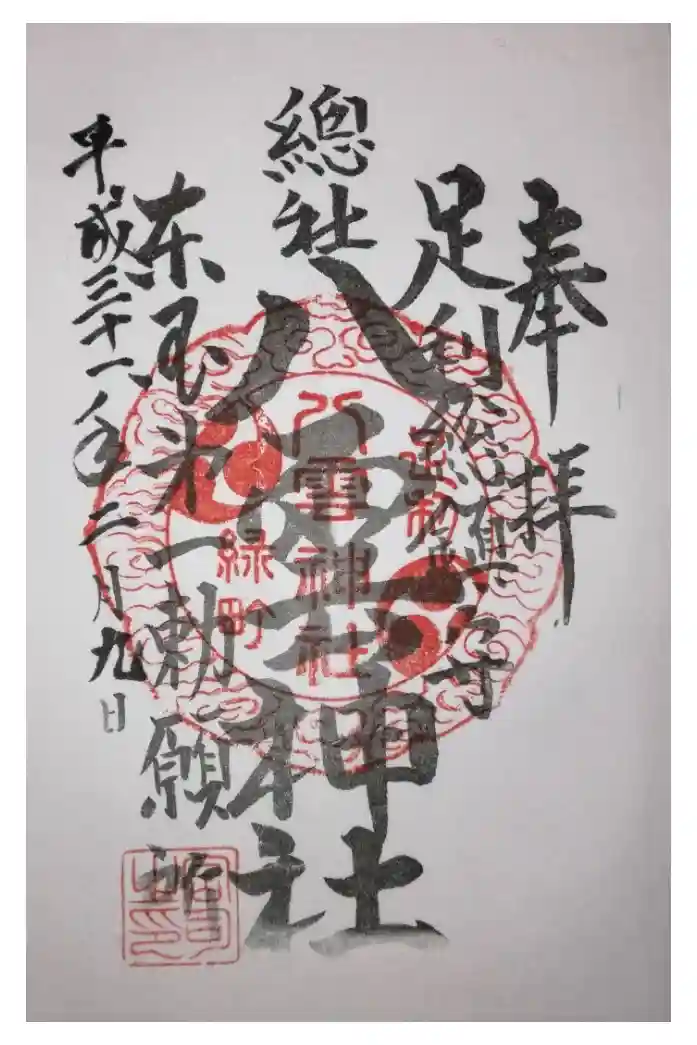 奉拝
足利総鎮守
總社
八雲神社
東国第一勅願所
平成三十一年二月九日
足利
八雲神社
緑町
宮司之印